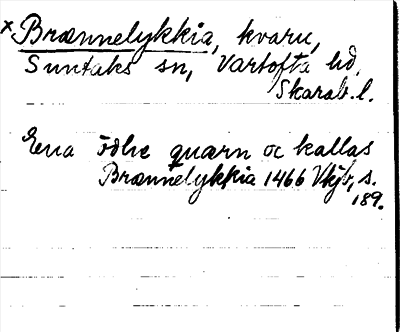 × Brænnelykkia, kvarn,
Suntaks sn, Vartofta hd,
Skarab. l.
Ena ödhe quærn oc kallas
Brænnelykkia 1466 Vkjb, s.
189.